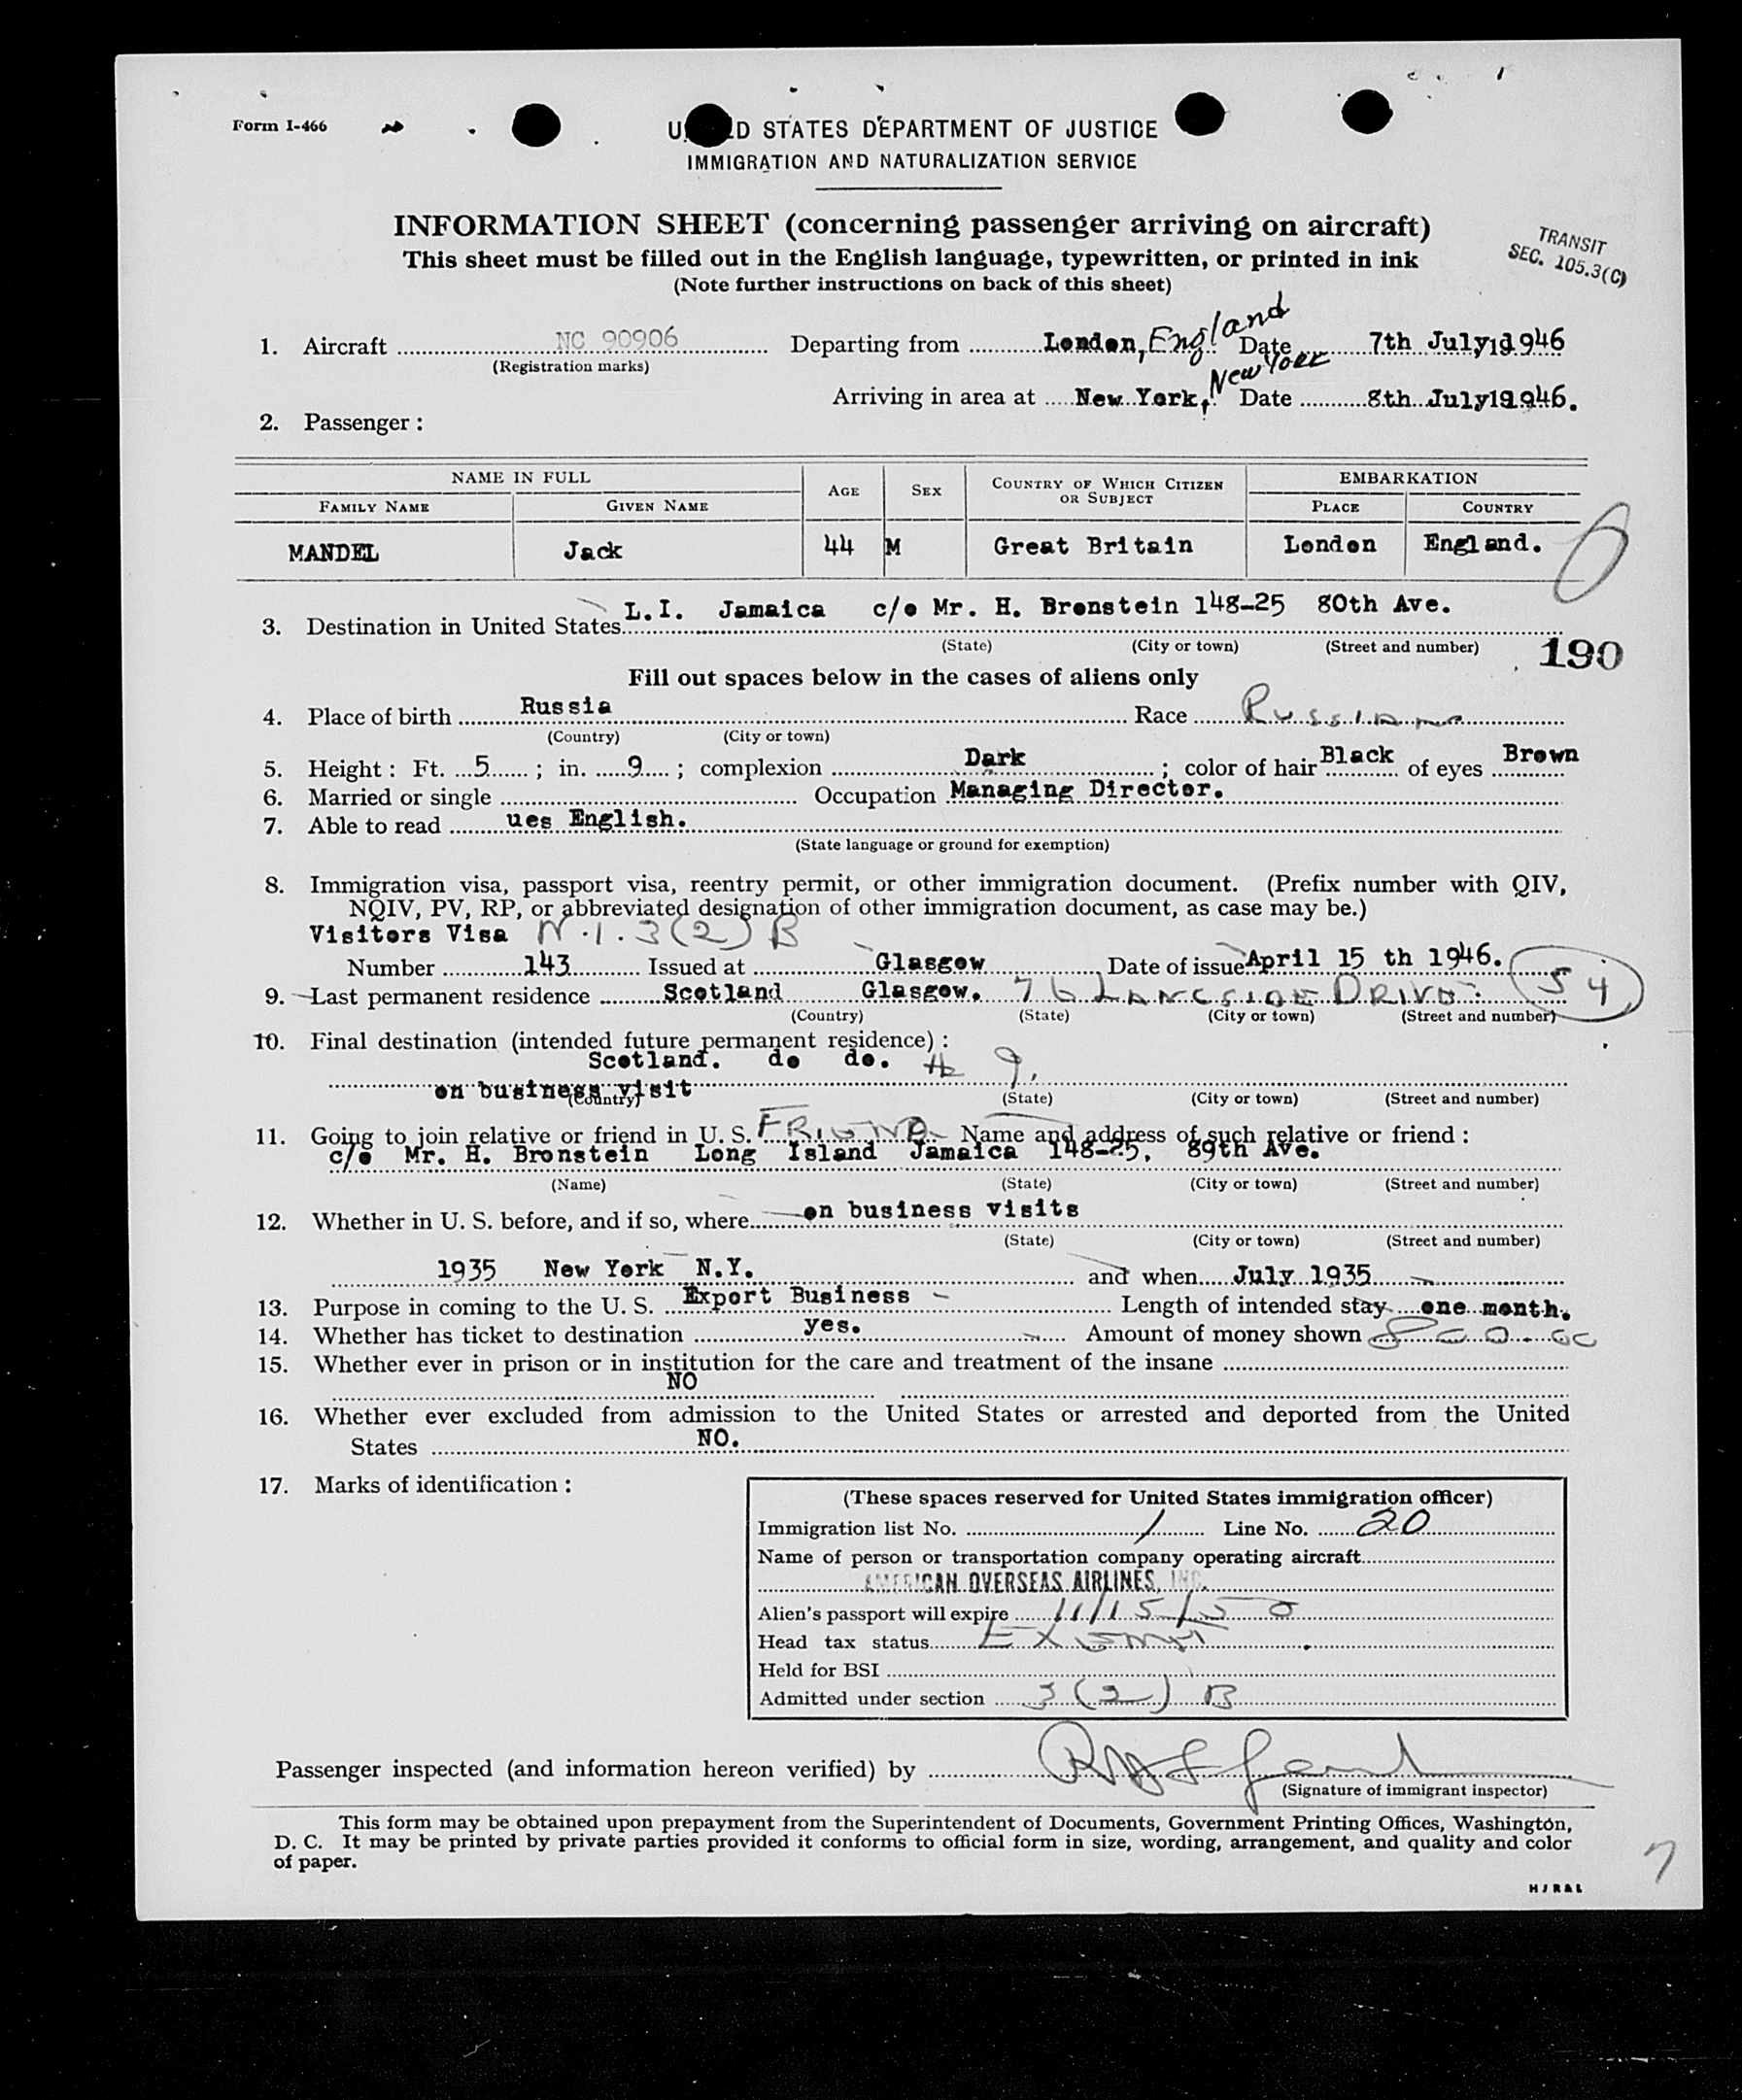 Form I-466
U D STATES DEPARTMENT OF JUSTICE
IMMIGRATION AND NATURALIZATION SERVICE
INFORMATION SHEET (concerning passenger arriving on aircraft)
This sheet must be filled out in the English language, typewritten, or printed in ink
(Note further instructions on back of this sheet)
TRANSIT
SEC. 105.3(C)
1. Aircraft NC 90906 Departing from London, England Date 7th July 1946
(Registration marks)
Arriving in area at New York, New York Date 8th July 1946.
2. Passenger :
NAME IN FULL AGE SEX COUNTRY OF WHICH CITIZEN OR SUBJECT EMBARKATION
FAMILY NAME GIVEN NAME PLACE COUNTRY
MANDEL Jack 44 M Great Britain London England.
3. Destination in United States L.I. Jamaica c/o Mr. H. Bronstein 148-25 80th Ave.
(State) (City or town) (Street and number)
190
Fill out spaces below in the cases of aliens only
4. Place of birth Russia Race Russian
(Country) (City or town)
5. Height : Ft. 5 ; in. 9 ; complexion Dark ; color of hair Black of eyes Brown
6. Married or single Occupation Managing Director.
7. Able to read ues English.
(State language or ground for exemption)
8. Immigration visa, passport visa, reentry permit, or other immigration document. (Prefix number with QIV,
NQIV, PV, RP, or abbreviated designation of other immigration document, as case may be.)
Visitors Visa N.I. 3(2) B
Number 143 Issued at Glasgow Date of issue April 15 th 1946.
9. Last permanent residence Scotland Glasgow. 76 LANGSIDE DRIVE. 54
(Country) (State) (City or town) (Street and number)
10. Final destination (intended future permanent residence) :
Scotland. do do. # 9.
on business visit
(Country) (State) (City or town) (Street and number)
11. Going to join relative or friend in U. S. FRIEND Name and address of such relative or friend :
c/o Mr. H. Bronstein Long Island Jamaica 148-25, 89th Ave.
(Name) (State) (City or town) (Street and number)
12. Whether in U. S. before, and if so, where on business visits
(State) (City or town) (Street and number)
1935 New York N.Y. and when July 1935
13. Purpose in coming to the U. S. Export Business Length of intended stay one month.
14. Whether has ticket to destination yes. Amount of money shown
15. Whether ever in prison or in institution for the care and treatment of the insane
NO
16. Whether ever excluded from admission to the United States or arrested and deported from the United
States NO.
17. Marks of identification :
(These spaces reserved for United States immigration officer)
Immigration list No. 1 Line No. 20
Name of person or transportation company operating aircraft
AMERICAN OVERSEAS AIRLINES, INC.
Alien's passport will expire 11/15/50
Head tax status Exempt
Held for BSI
Admitted under section 3(2) B
Passenger inspected (and information hereon verified) by
(Signature of immigrant inspector)
This form may be obtained upon prepayment from the Superintendent of Documents, Government Printing Offices, Washington,
D. C. It may be printed by private parties provided it conforms to official form in size, wording, arrangement, and quality and color
of paper.
7